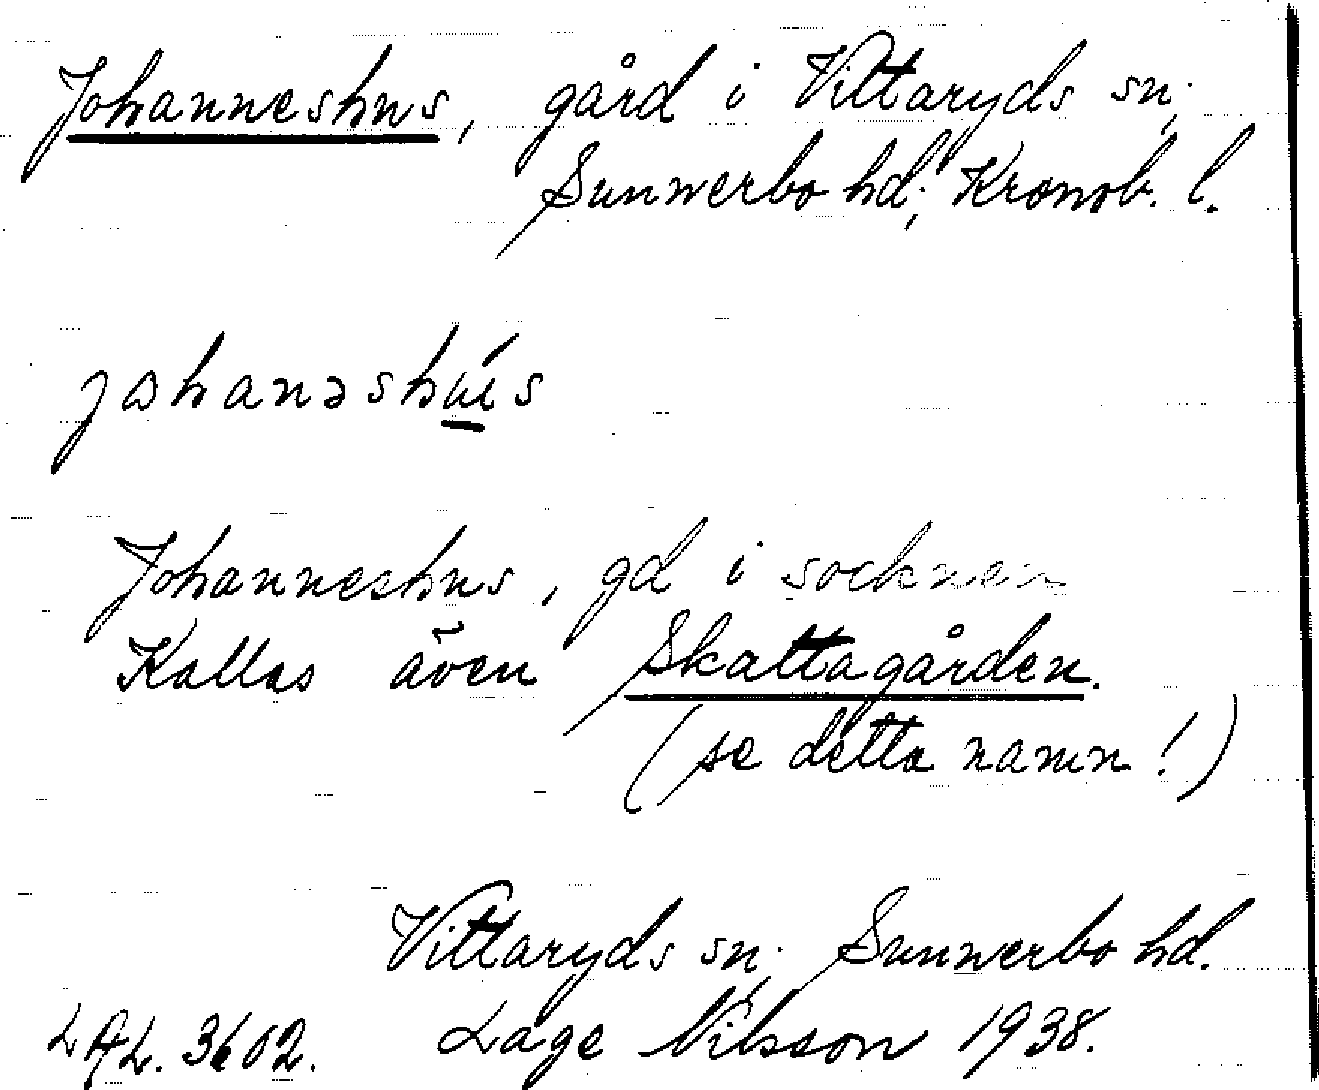 Johanneshus, gård i Vittaryds sn;
Sunnerbo hd; Kronob. l.
johanəshú̲s
Johanneshus, gd i socknen
Kallas även Skattagården.
(se detta namn!)
Vittaryds sn; Sunnerbo hd.
LAL. 3602. Lage Nilsson 1938.